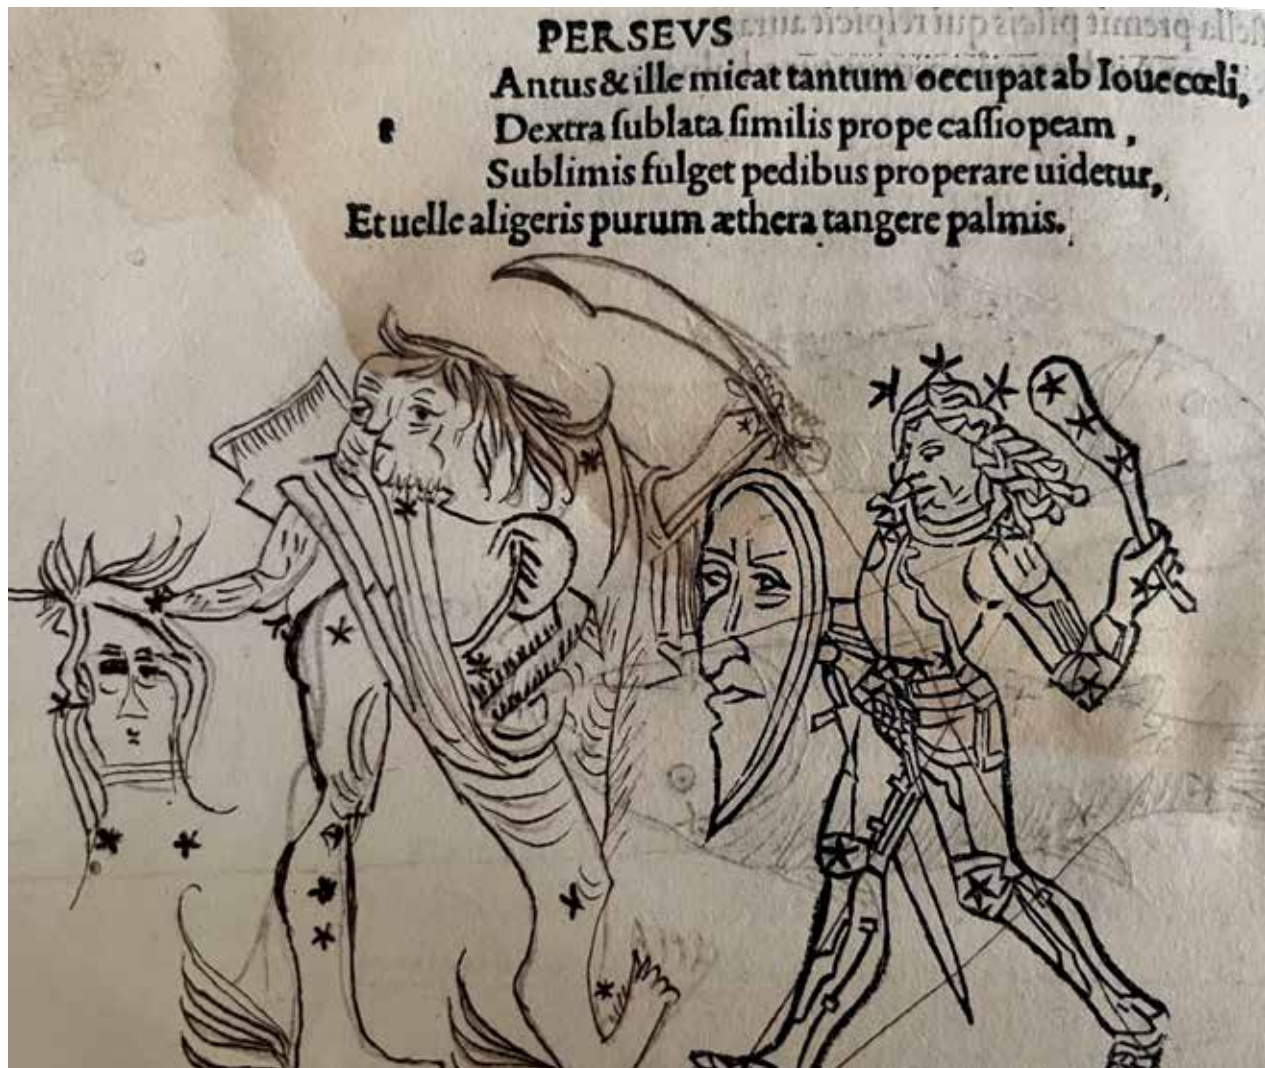 PERSEVS
Antus & ille micat tantum occupat ab Ioue cœli,
t Dextra sublata similis prope cassiopeam,
Sublimis fulget pedibus properare uidetur,
Et uelle aligeris purum æthera tangere palmis.